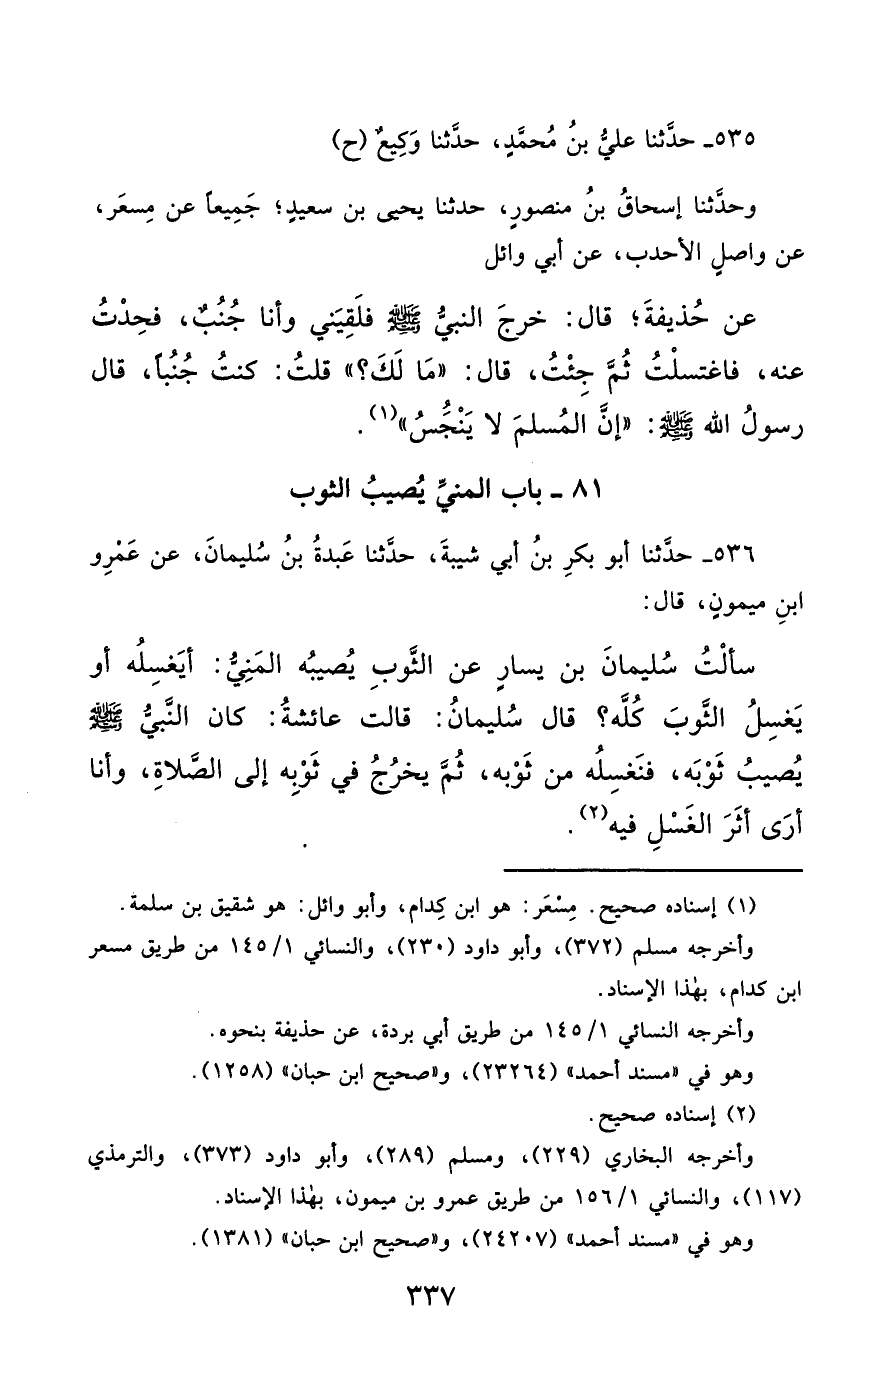 ٥٣٥ـ حدَّثنا عليُّ بنُ مُحمَّدٍ، حدَّثنا وَكِيعٌ (ح)
وحدَّثنا إسحاقُ بنُ منصورٍ، حدثنا يحيى بن سعيدٍ؛ جَمِيعاً عن مِسعَر،
عن واصلٍ الأحدب، عن أبي وائل
عن حُذيفةَ؛ قال: خرجَ النبيُّ ﷺ فلَقِيَني وأنا جُنُبٌ، فحِدْتُ
عنه، فاغتسلْتُ ثُمَّ جِئْتُ، قال: «مَا لَكَ؟» قلتُ: كنتُ جُنُباً، قال
رسولُ الله ﷺ: «إنَّ المُسلمَ لا يَنْجُسُ»(١).
٨١ - باب المنيِّ يُصيبُ الثوب
٥٣٦ـ حدَّثنا أبو بكرِ بنُ أبي شيبةَ، حدَّثنا عَبدةُ بنُ سُليمانَ، عن عَمْرِو
ابنِ ميمونٍ، قال:
سألْتُ سُليمانَ بن يسارٍ عن الثَّوبِ يُصيبُه المَنِيُّ: أيَغسِلُه أو
يَغسِلُ الثَّوبَ كُلَّه؟ قال سُليمانُ: قالت عائشةُ: كان النَّبيُّ ﷺ
يُصيبُ ثَوْبَه، فنَغسِلُه من ثَوْبه، ثُمَّ يخرُجُ في ثَوْبِه إلى الصَّلاةِ، وأنا
أرَى أثَرَ الغَسْلِ فيه(٢).
(١) إسناده صحيح. مِسْعَر: هو ابن كِدام، وأبو وائل: هو شقيق بن سلمة.
وأخرجه مسلم (٣٧٢)، وأبو داود (٢٣٠)، والنسائي ١/ ١٤٥ من طريق مسعر
ابن كدام، بهٰذا الإسناد.
وأخرجه النسائي ١/ ١٤٥ من طريق أبي بردة، عن حذيفة بنحوه.
وهو في «مسند أحمد» (٢٣٢٦٤)، و«صحيح ابن حبان» (١٢٥٨).
(٢) إسناده صحيح.
وأخرجه البخاري (٢٢٩)، ومسلم (٢٨٩)، وأبو داود (٣٧٣)، والترمذي
(١١٧)، والنسائي ١/ ١٥٦ من طريق عمرو بن ميمون، بهٰذا الإسناد.
وهو في «مسند أحمد» (٢٤٢٠٧)، و«صحيح ابن حبان» (١٣٨١).
٣٣٧